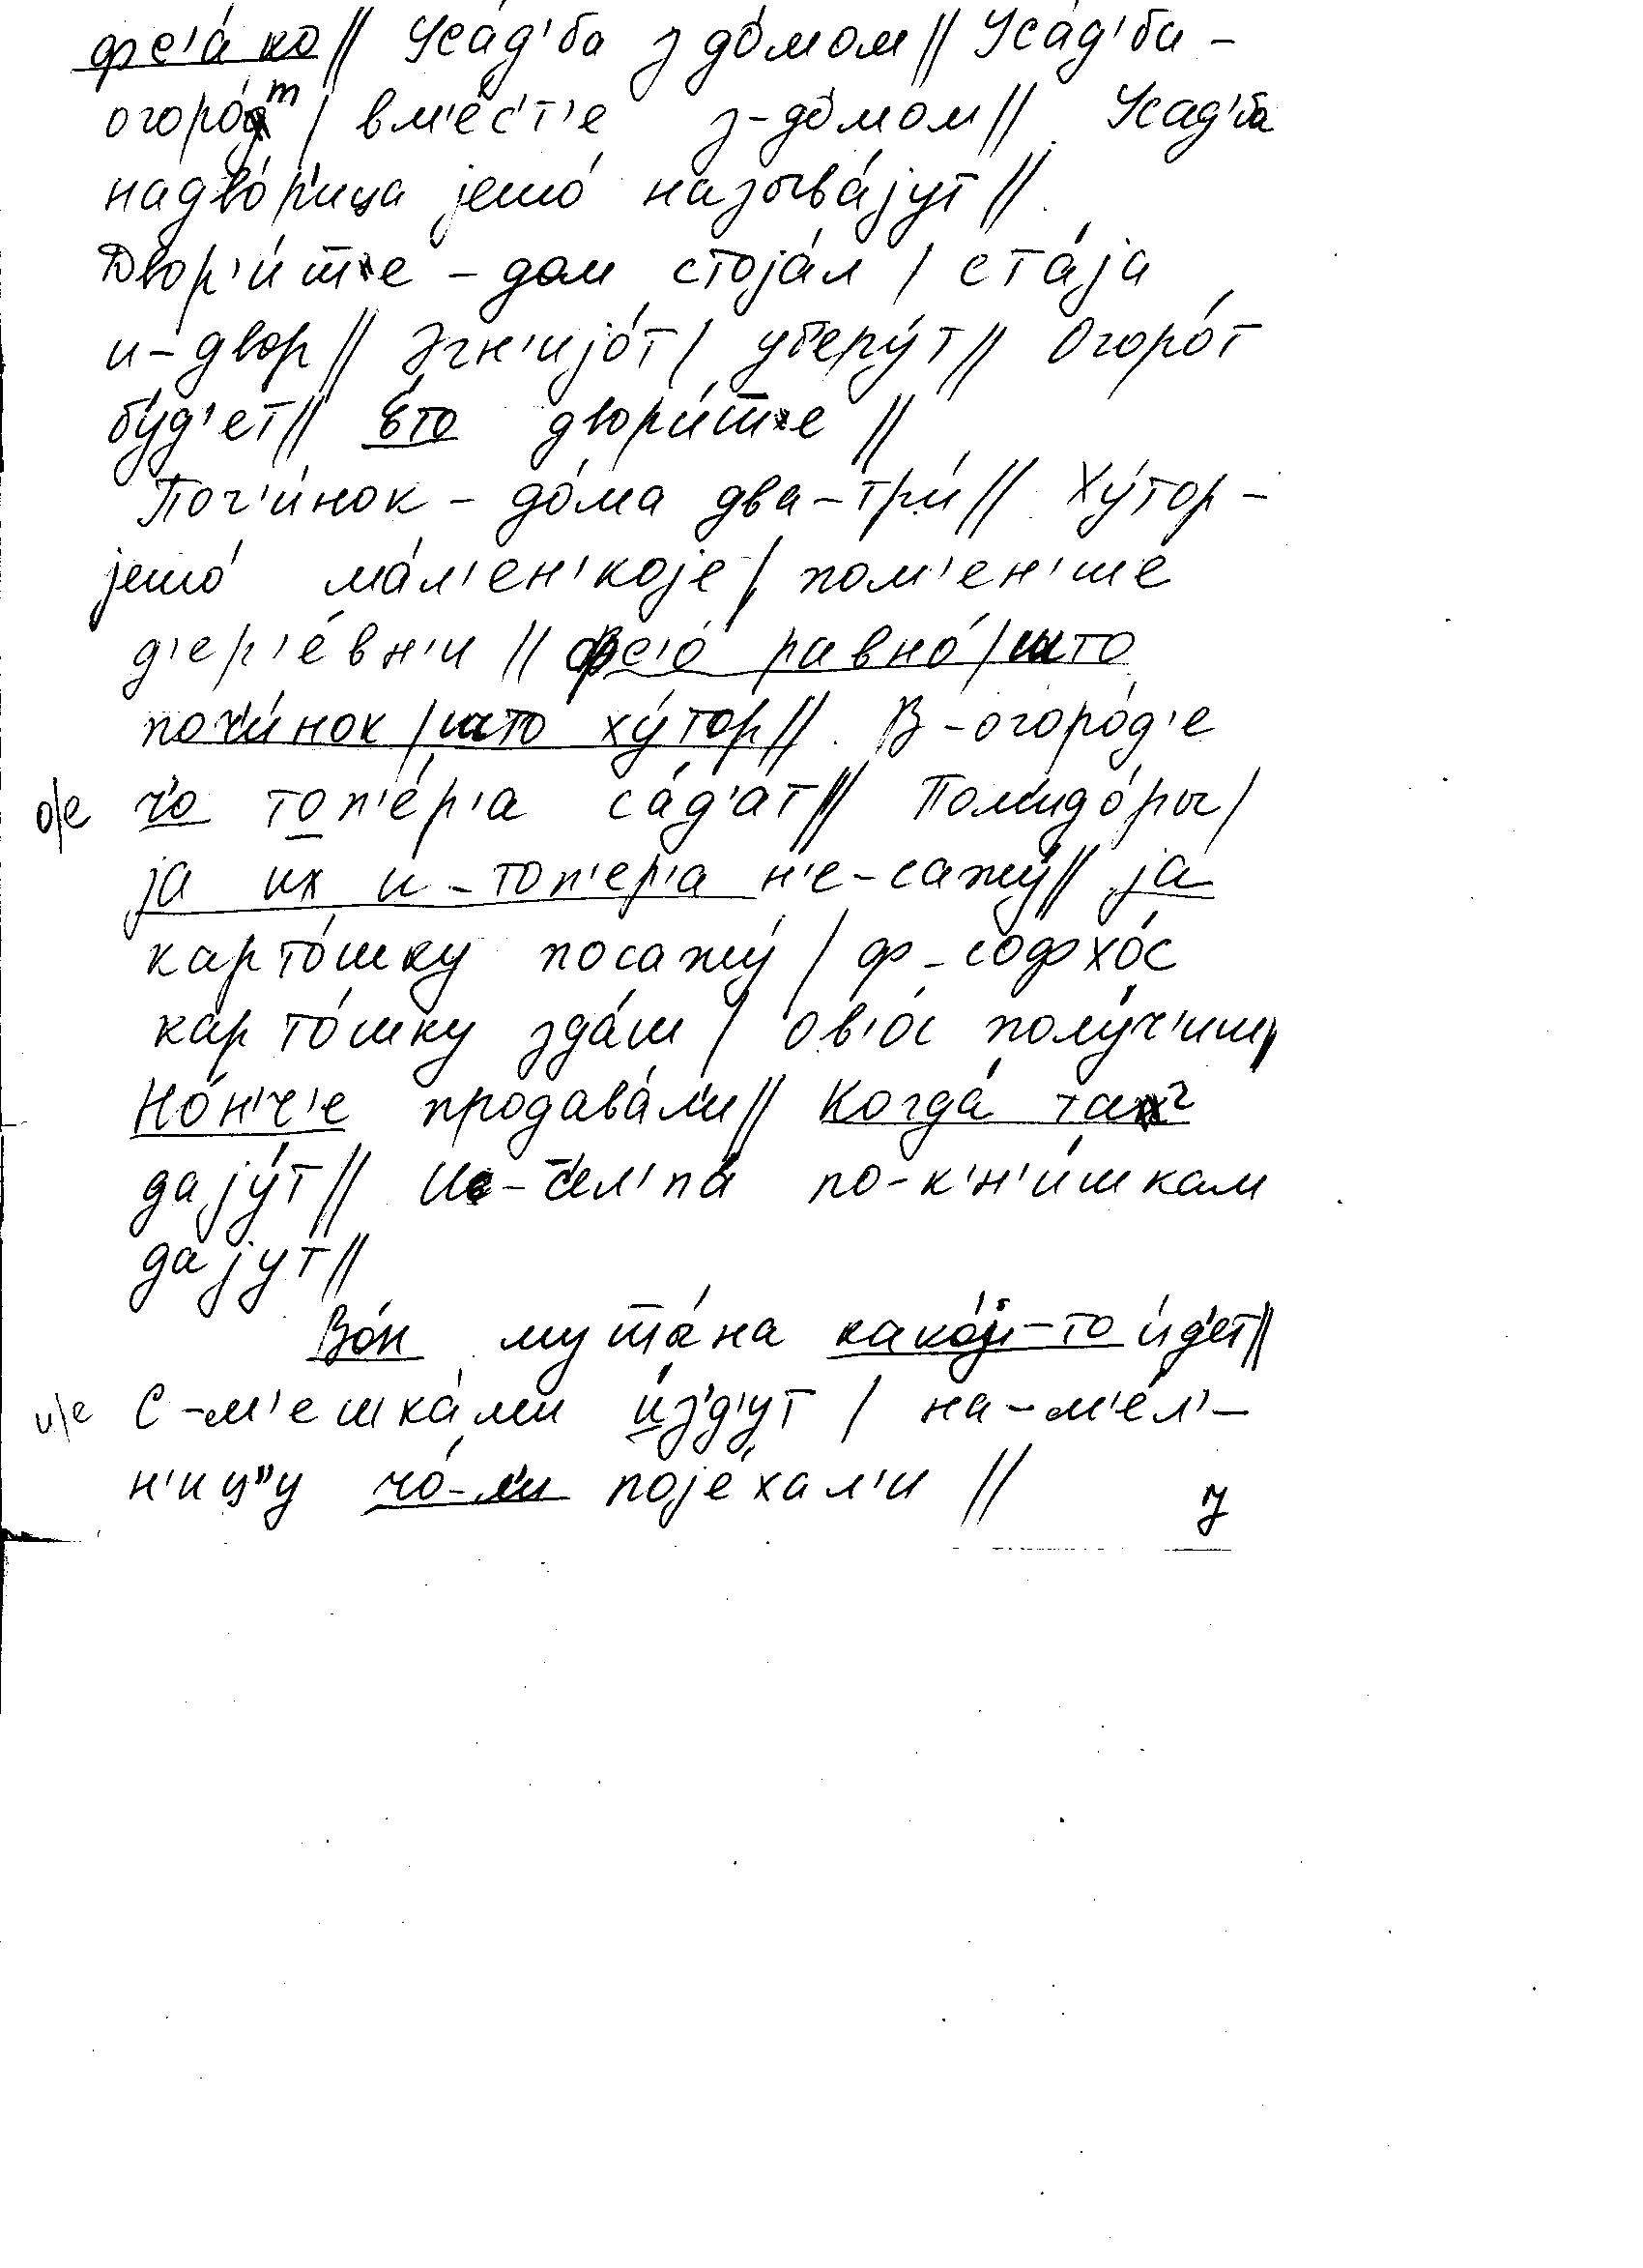 фс'а́ко// Уса́д'ба з до́мом// Уса́д'ба –
огоро́т / вм'е́с'т'е з-до́мом// Усад'ба
надво́р'ица јешо́ называ́јут//
Двор'и́ш̄е – дом стоја́л / ста́ја
и-двор// Згн'ијо́т / уберу́т// Огоро́т
бу́д'ет// е́то двори́ш̄е //
Поч'и́нок – до́ма два-три́// Ху́тор –
јешо́ ма́л'ен'које / пом'ен'ше́
д'ер'е́вн'и // фс'о́ равно́ / што
почи́нок / што ху́тор// В-огоро́д'е
о/е чо топ'е́р'а са́д'ат// Помидо́ры /
ја их и-топ'ер'а н'е-сажу́// ја
карто́шку посажу́ / ф-софхо́с
карто́шку зда́ш / ов'о́с полу́ч'иш/
Но́н'ч'е продава́л'и// Когда́ так
дају́т// Ис-с'ел'па́ по-к'н'и́шкам
дајут//
Во́н мущ̄и́на како́й-то и́д'ет//
и/е С-м'ешка́ми и́з'д'ут / на-м'е́л'–
н'иц"у чо́-л'и појехал'и //
7